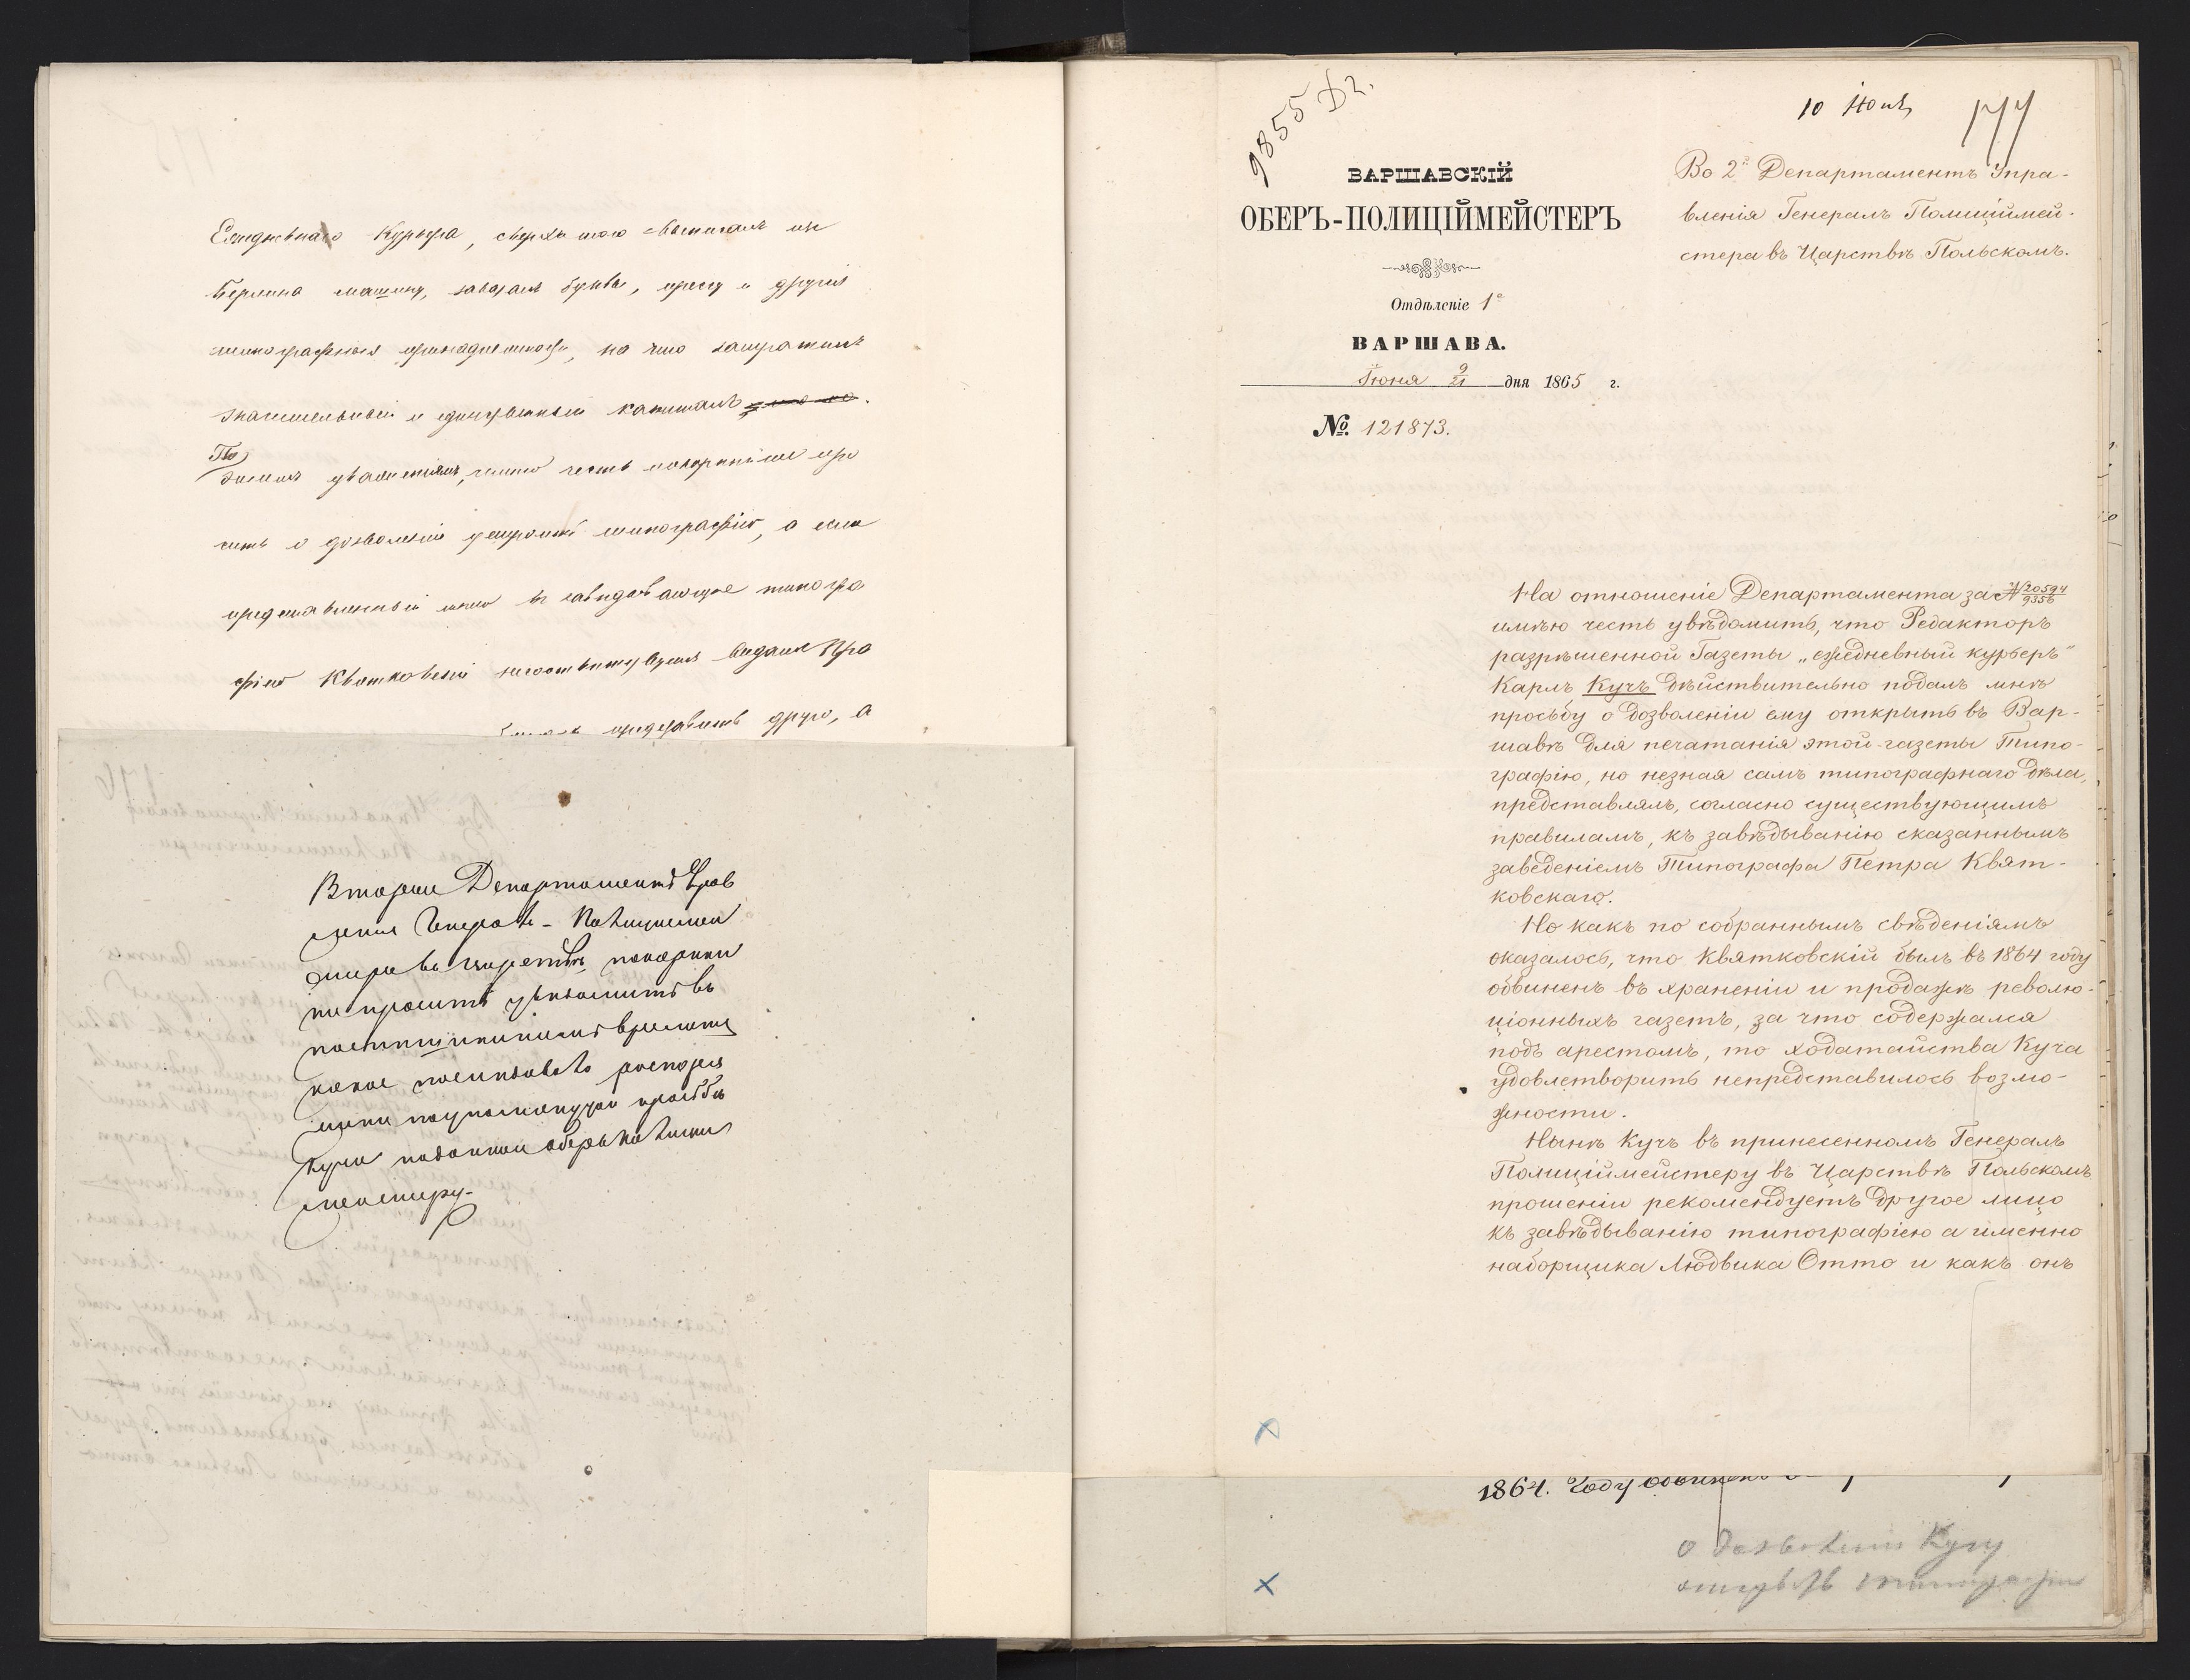 Ежедневнаго Курьера, сверхъ того выписалъ изъ
Берлина машину, заказалъ буквы, прессу и другія
типографныя принадлежности, на что затратилъ
значительный и единственный капиталъ
По
этимъ уваженіямъ, имѣю честь покорнѣйше про
сить о дозволеніи устроить типографію, а если
представленный мною въ завѣдывающіе типогра
фіею Квятковскій
представить друго, а
Второй Департаментъ Управ
ленія Генералъ-Полиціймей
стера въ Царствѣ, покорнѣй
ше проситъ увѣдомить въ
непродолжительномъ времени
какое послѣдовало распоря
женіе по упомянутой просьбѣ
Куча поданной Оберъ-Полицій
мейстеру.
9855 Д2.
10 Іюня
177
ВАРШАВСКІЙ
ОБЕРЪ-ПОЛИЦІЙМЕЙСТЕРЪ
Отдѣленіе 1е
ВАРШАВА.
Іюня 9/21 дня 1865 г.
№. 121873.
Во 2й Департаментъ Упра-
вленія Генералъ Полиціймей-
стера въ Царствѣ Польскомъ.
На отношеніе Департамента за № 20594/9356
имѣю честь увѣдомить, что Редакторъ
разрѣшенной Газеты „ежедневный курьеръ"
Карлъ Кучъ дѣйствительно подалъ мнѣ
просьбу о дозволеніи ему открыть въ Вар-
шавѣ для печатанія этой газеты Типо-
графію, но незная самъ типографнаго дѣла,
представлялъ, согласно существующимъ
правиламъ, къ завѣдыванію сказаннымъ
заведеніемъ Типографа Петра Квят-
ковскаго.
Но какъ по собраннымъ свѣденіямъ
оказалось, что Квятковскій былъ въ 1864 году
обвиненъ въ храненіи и продажѣ револю-
ціонныхъ газетъ, за что содержался
подъ арестомъ, то ходатайства Куча
удовлетворить непредставилось возмо-
жности.
Нынѣ Кучъ въ принесенномъ Генералъ
Полиціймейстеру въ Царствѣ Польскомъ
прошеніи рекомендуетъ другое лицо
къ завѣдыванію типографіею а именно
наборщика Людвика Отто и какъ онъ
1864. Году обвиненъ
о дозволеніи Кучу
открыть типографію